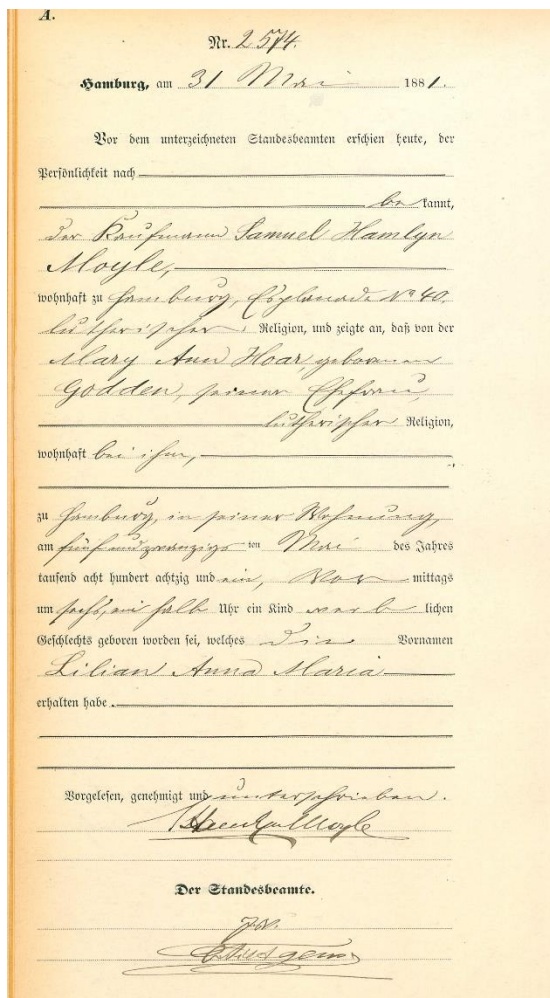 A.
Nr. 2574.
Hamburg, am 31 Mai 1881.
Vor dem unterzeichneten Standesbeamten erschien heute, der
Persönlichkeit nach
bekannt,
der Kaufmann Samuel Hamlyn
Moyle,
wohnhaft zu Hamburg, Esplanade No 40,
lutherischer Religion, und zeigte an, daß von der
Mary Ann Hoar, geborenen
Godden, seiner Ehefrau,
lutherischer Religion,
wohnhaft bei ihm,
zu Hamburg, in seiner Wohnung,
am fünfundzwanzigsten Mai des Jahres
tausend acht hundert achtzig und ein, Vormittags
um sechs, ein halb Uhr ein Kind weiblichen
Geschlechts geboren worden sei, welches die Vornamen
Lilian Anna Maria
erhalten habe.
Vorgelesen, genehmigt und unterschrieben.
Moyle
Der Standesbeamte.